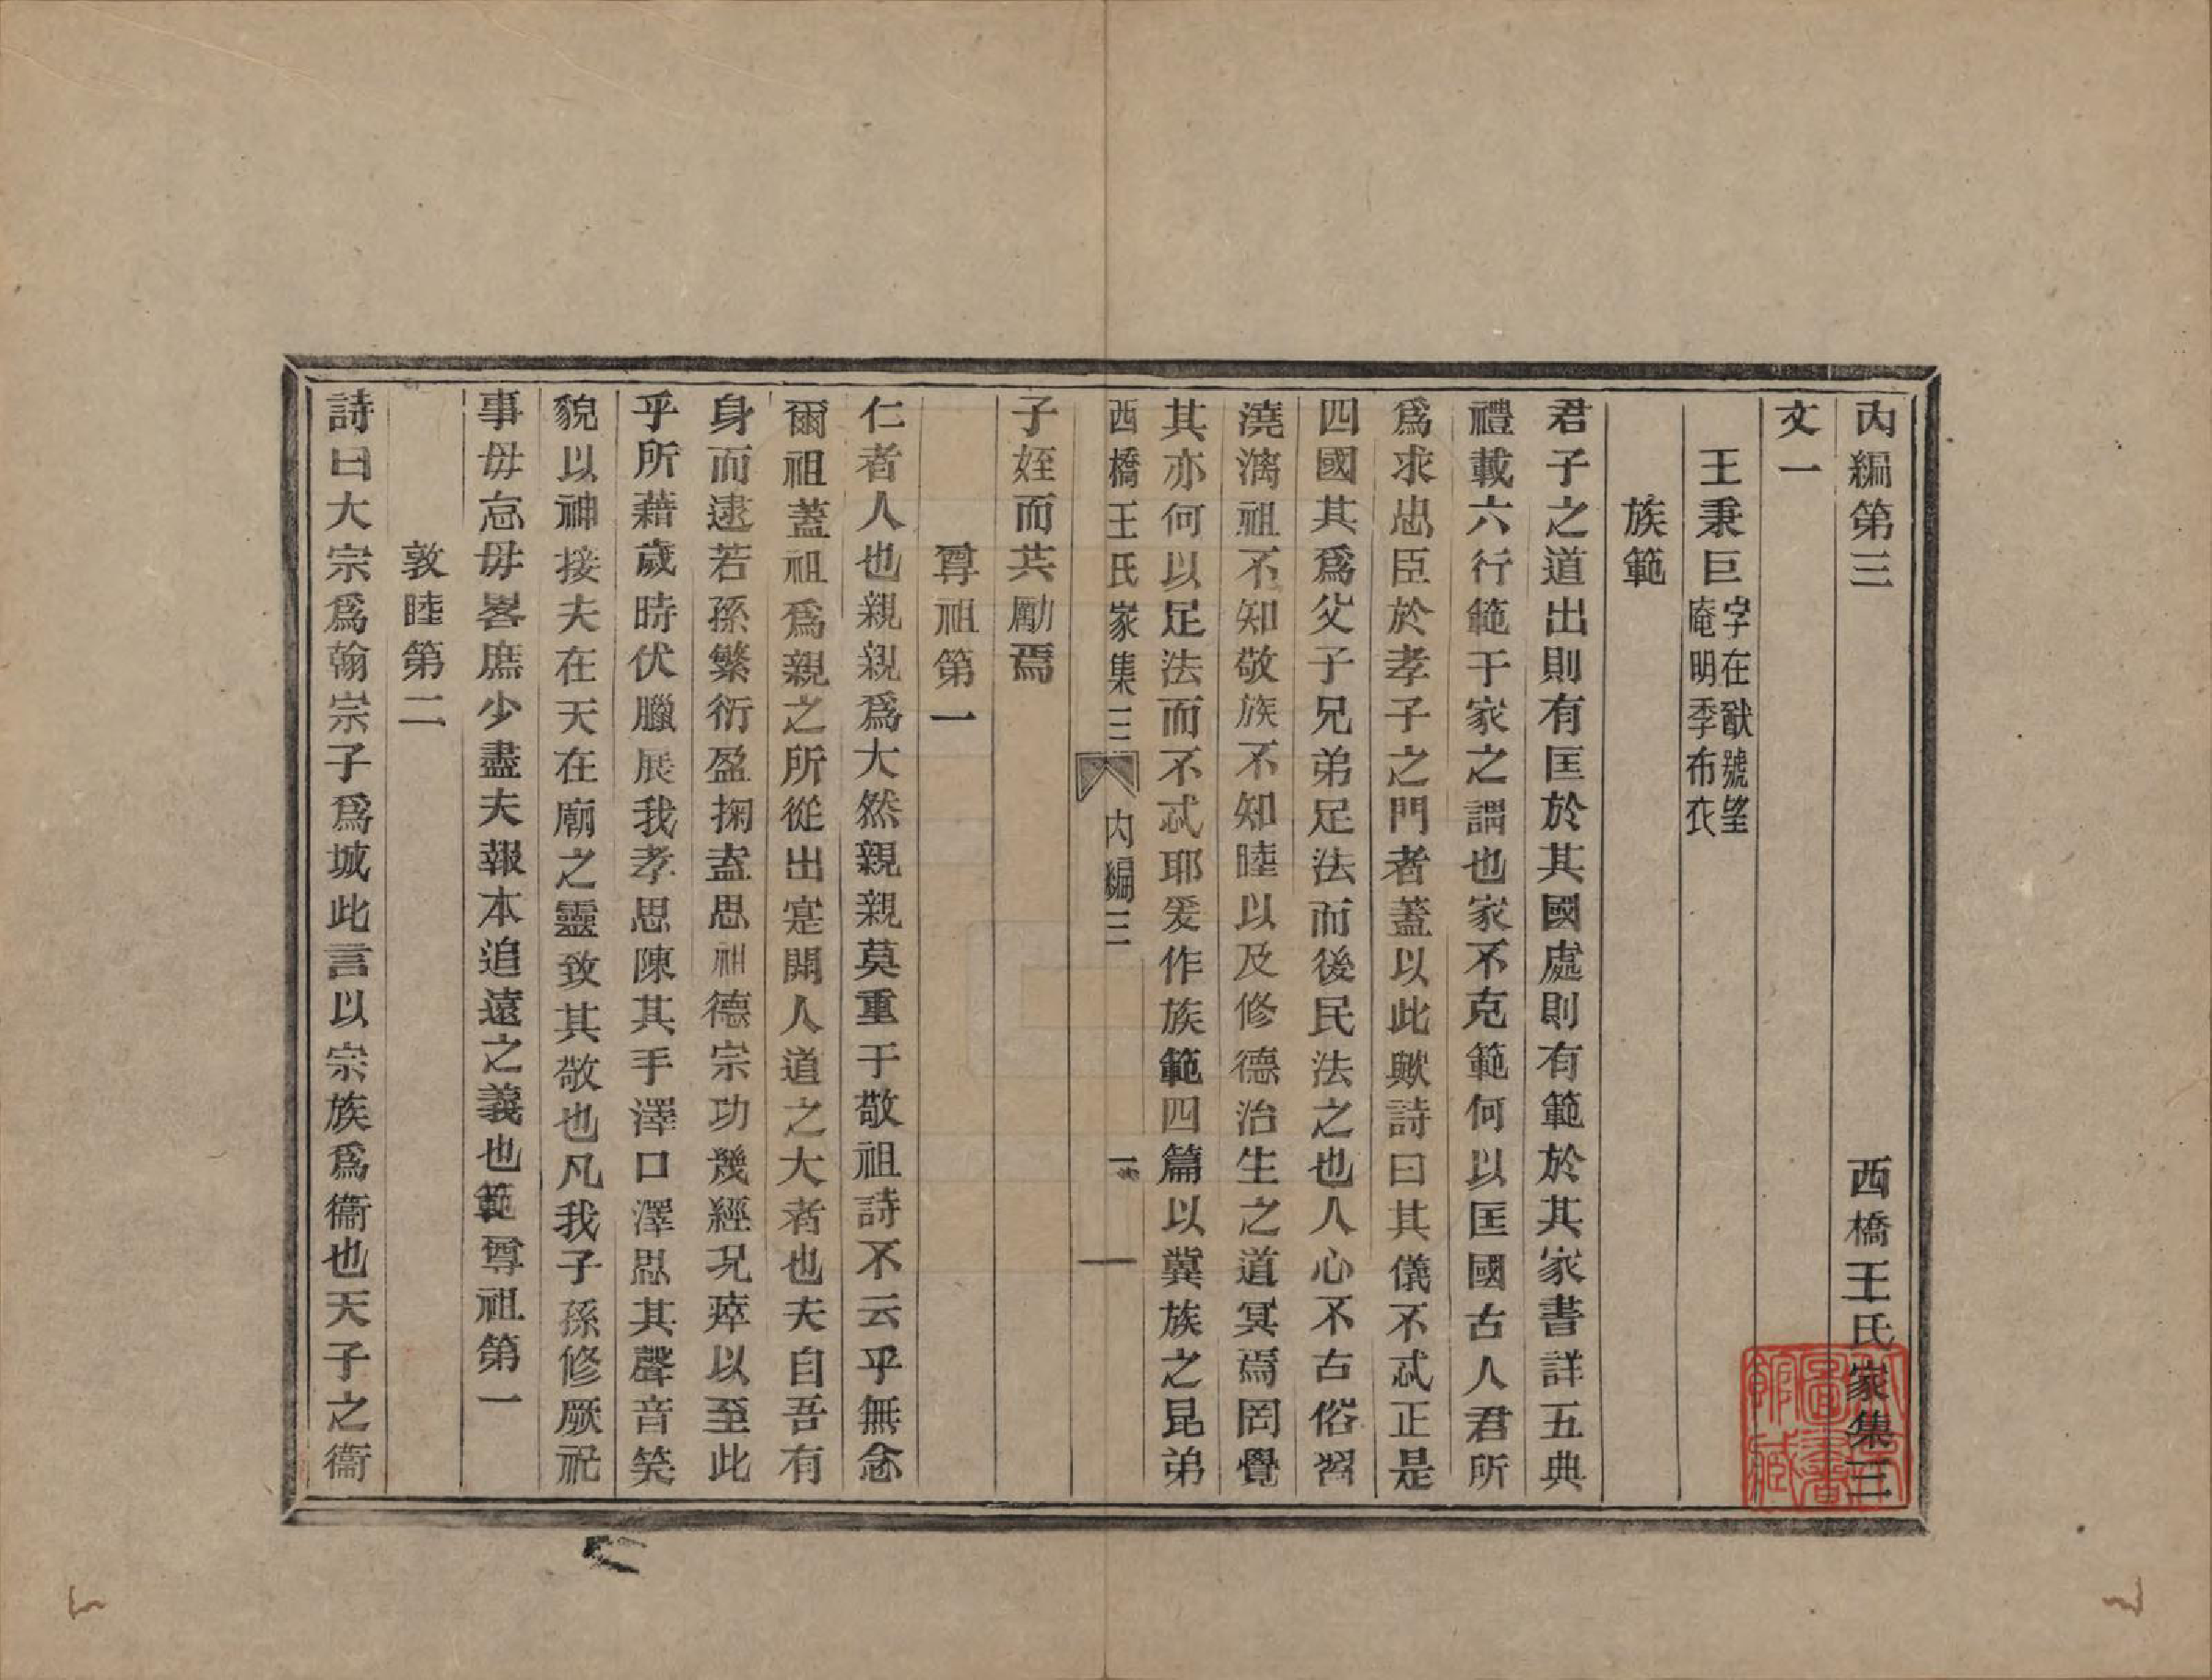 內編第三　西橋王氏家集三
文一
王秉巨字在猷號望庵明季布衣
族範
君子之道出則有匡於其國處則有範於其家書詳五典
禮載六行範于家之謂也家不克範何以匡國古人君所
爲求忠臣於孝子之門者蓋以此歟詩曰其儀不忒正是
四國其爲父子兄弟足法而後民法之也人心不古俗習
澆漓祖不知敬族不知睦以及修德治生之道冥焉罔覺
其亦何以足法而不忒耶爰作族範四篇以冀族之昆弟
西橋王氏家集三　內編三　一
子姪而共勵焉
尊祖第一
仁者人也親親爲大然親親莫重于敬祖詩不云乎無念
爾祖蓋祖爲親之所從出寔開人道之大者也夫自吾有
身而逮若孫繁衍盈掬盍思祖德宗功幾經況瘁以至此
乎所藉歲時伏臘展我孝思陳其手澤口澤思其聲音笑
貌以神接夫在天在廟之靈致其敬也凡我子孫修厥祀
事毋忘毋畧庶少盡夫報本追遠之義也範尊祖第一
敦睦第二
詩曰大宗爲翰宗子爲城此言以宗族爲衞也天子之衞